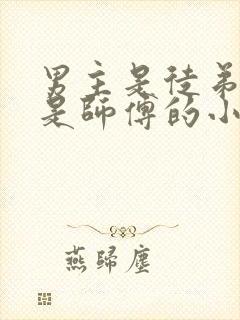 男主是徒弟
是師傅的小
燕歸塵